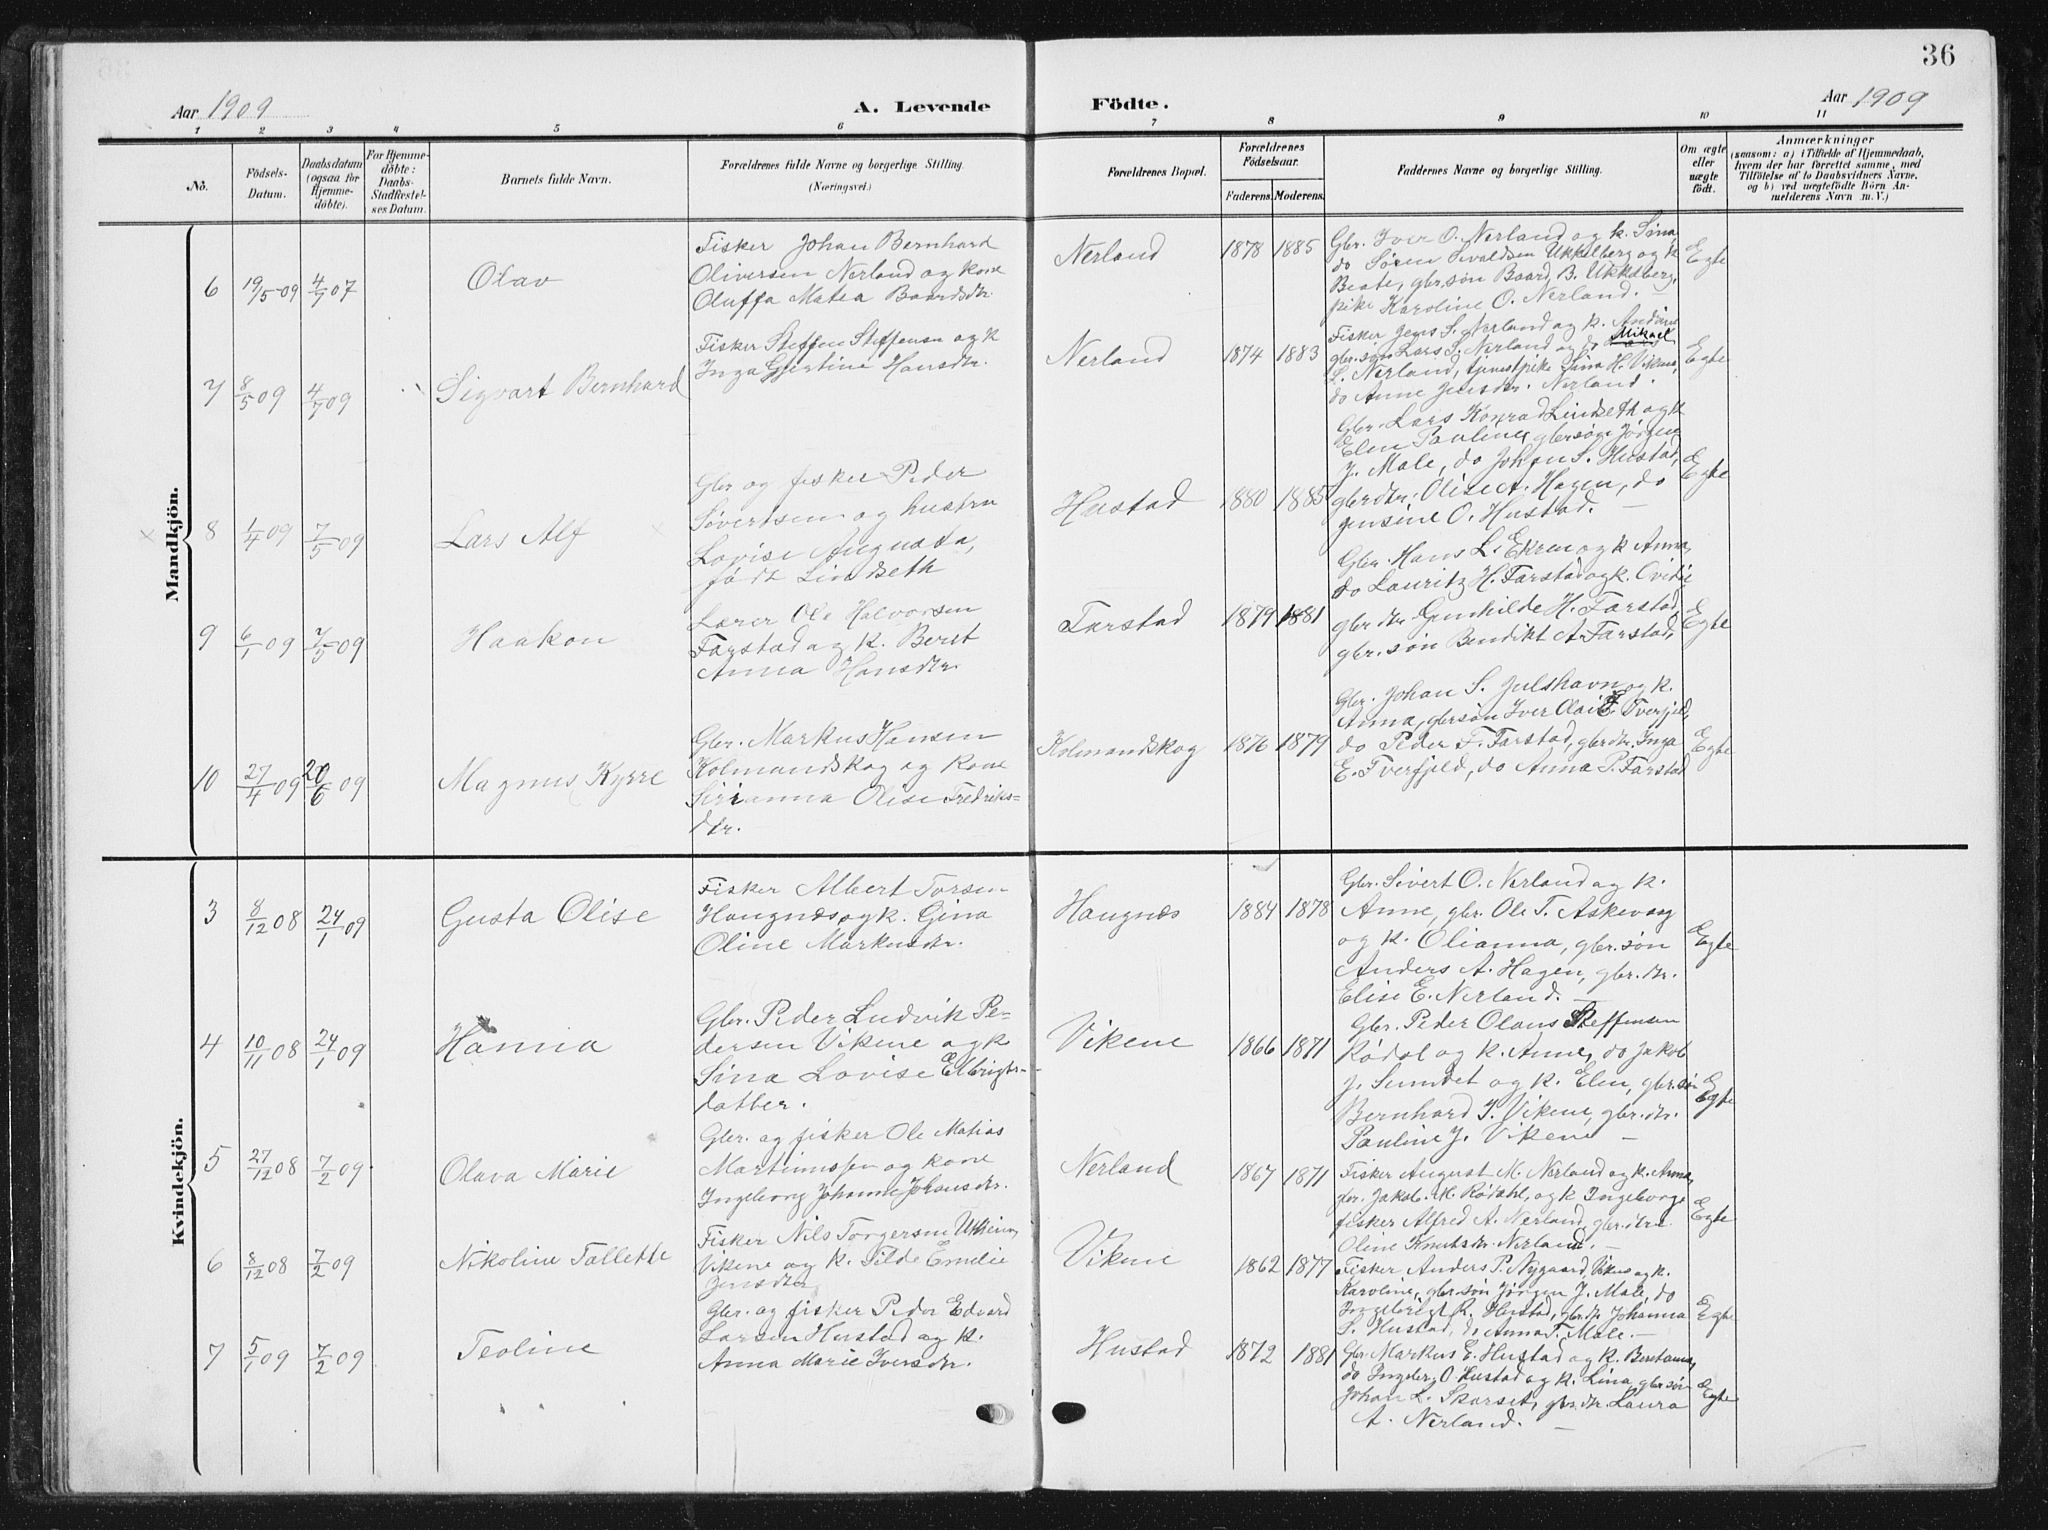 36
Aar 1909
A. Levende
Födte.
Aar 1909
1 2 3 4 5 6 7 8 9 10 11
No.
Födsels-
Datum.
Daabsdatum
(ogsaa for
Hjemme-
döbte).
For Hjemme-
döbte:
Daabs-
Stadfæstel-
ses Datum.
Barnets fulde Navn.
Forældrenes fulde Navne og borgerlige Stilling.
(Næringsvei.)
Forældrenes Bopæl.
Forældrenes
Födselsaar.
Faderens. Moderens.
Faddernes Navne og borgerlige Stilling.
Om ægte
eller
uægte
födt.
Anmærkninger
(saasom: a) i Tilfælde af Hjemmedaab,
hvem der har forrettet samme, med
Tilföielse af to Daabsvidners Navne,
og b) ved uægtefödte Börn An-
melderens Navn m. V.)
Mandkjön.
6 19/5 09 4/7 07 Olav
Fisker Johan Bernhard
Oliversen Nerland og kone
Oluffa Matea Baardsdtr.
Nerland 1878 1885
Gbr. Iver O. Nerland og k. Sina,
do Søren Sivaldsen Ukkelberg og k
Beate, gbr.søn Baard B. Ukkelberg,
pike Karoline O. Nerland. —
Egte
7 8/5 09 4/7 09 Sigvart Bernhard
Fisker Steffen Steffensen og k
Inga Gjertine Hansdtr.
Nerland 1874 1883
Fisker Jens S. Nerland og k. Andrine
Mikael
gbr. søn Lars S. Nerland og do
L. Nerland, tjenestpike Sina H. Vikene,
do Anne Jensdtr. Nerland.
Egte
8 1/4 09 7/5 09 Lars Alf
Gbr og fisker Peder
Sivertsen og hustru
Lovise Augusta,
født Lindseth
Hustad 1880 1885
Gbr. Lars Konrad Lindseth og k
Elen Pauline, gbrsøn Jørgen
J. Male, do Johan S. Hustad,
gbrdtr. Olise A. Hagen, do
Jensine O. Hustad. —
Egte
9 6/1 09 7/5 09 Haakon
Lærer Ole Halvorsen
Farstad og k. Beret
Anna Hansdtr.
Farstad 1879 1881
Gbr. Hans L. Ekren og k Anna,
do Lauritz H. Farstad og k. Ovidie
gbr dtr Gunhilde H. Farstad,
gbr. søn Bendikt A. Farstad,
Egte
10 27/4 09 20/6 09 Magnus Kyrre
Gbr. Markus Hansen
Kolmandskog og kone
Sirianna Olise Fredriks-
dtr.
Kolmandskog 1876 1879
Gbr. Johan S. Julshavn og k.
Anna, gbrsøn Iver Olai E. Tverfjeld,
do Peder F. Farstad, gbrdtr. Inga
E. Tverfjeld, do Anna P. Farstad
Egte
Kvindekjön.
3 8/12 08 24/1 09 Gusta Olise
Fisker Albert Torsen
Haugnæs og k. Gina
Oline Markusdtr.
Haugnæs 1884 1878
Gbr. Sivert O. Nerland og k.
Anne, gbr. Ole T. Askevaag
og k. Olianna, gbr. søn
Anders A. Hagen, gbr. dtr.
Elise E. Nerland. —
Egte
4 10/11 08 24/1 09 Hanna
Gbr. Peder Ludvik Pe-
dersen Vikene og k
Sina Lovise Elbrigts-
datter.
Vikene 1866 1871
Gbr. Peder Olaus Steffensen
Rødal og k. Anne, do Jakob
J. Sundet og k. Elen, gbr. søn
Bernhard J. Vikene, gbr. dtr.
Pauline J. Vikene —
Egte
5 27/12 08 7/2 09 Olava Marie
Gbr. og fisker Ole Matias
Martinussen og kone
Ingeborg Johanne Johansdtr.
Nerland 1867 1871
Fisker August M. Nerland og k. Anna,
gbr. Jakob M. Rødahl, og k Ingeborg,
fisker Alfred A. Nerland, gbr. dtre
Oline Knutsdtr. Nerland. —
Egte
6 8/12 08 7/2 09 Nikoline Tallette
Fisker Nils Torgersen
Vikene og k. Tilde Emelie
Jensdtr
Vikene 1862 1877
Fisker Anders P. Nygaard, Vikene og k.
Karoline, gbr. søn Jørgen J. Male, do
Ingebrigt R. Hustad, gbr. dtr Johanna
S. Hustad, do Anna T. Male. —
Egte
7 5/1 09 7/2 09 Teoline
Gbr. og fisker Peder Edvard
Larsen Hustad og k.
Anna Marie Iversdtr.
Hustad 1872 1881
Gbr. Markus E. Hustad og k. Beretanna,
do Ingebr. O. Hustad og k. Lina, gbr søn
Johan L. Skarset, gbr. dtr. Laura
A. Nerland. —
Egte